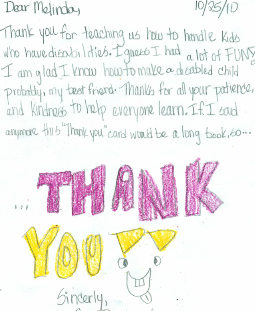 Dear Melinda, 10/25/10
Thank you for teaching us how to handle kids
who have disabilities. I guess I had a lot of FUN!
I am glad I know how to make a disabled child
probably, my best friend. Thanks for all your patience,
and kindness to help everyone learn. If I said
anymore this "Thank you" card would be a long book, so...
... THANK
YOU
Sincerly,